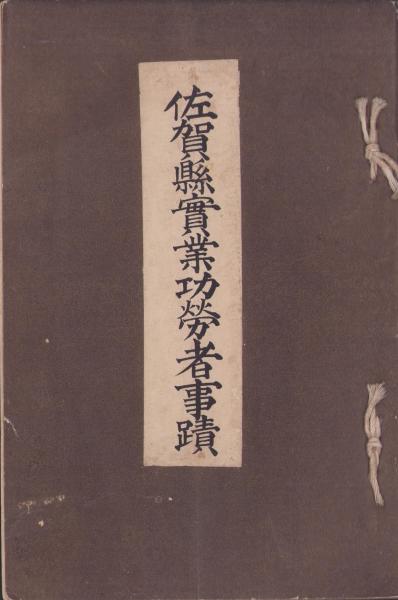 佐賀縣實業功勞者事蹟